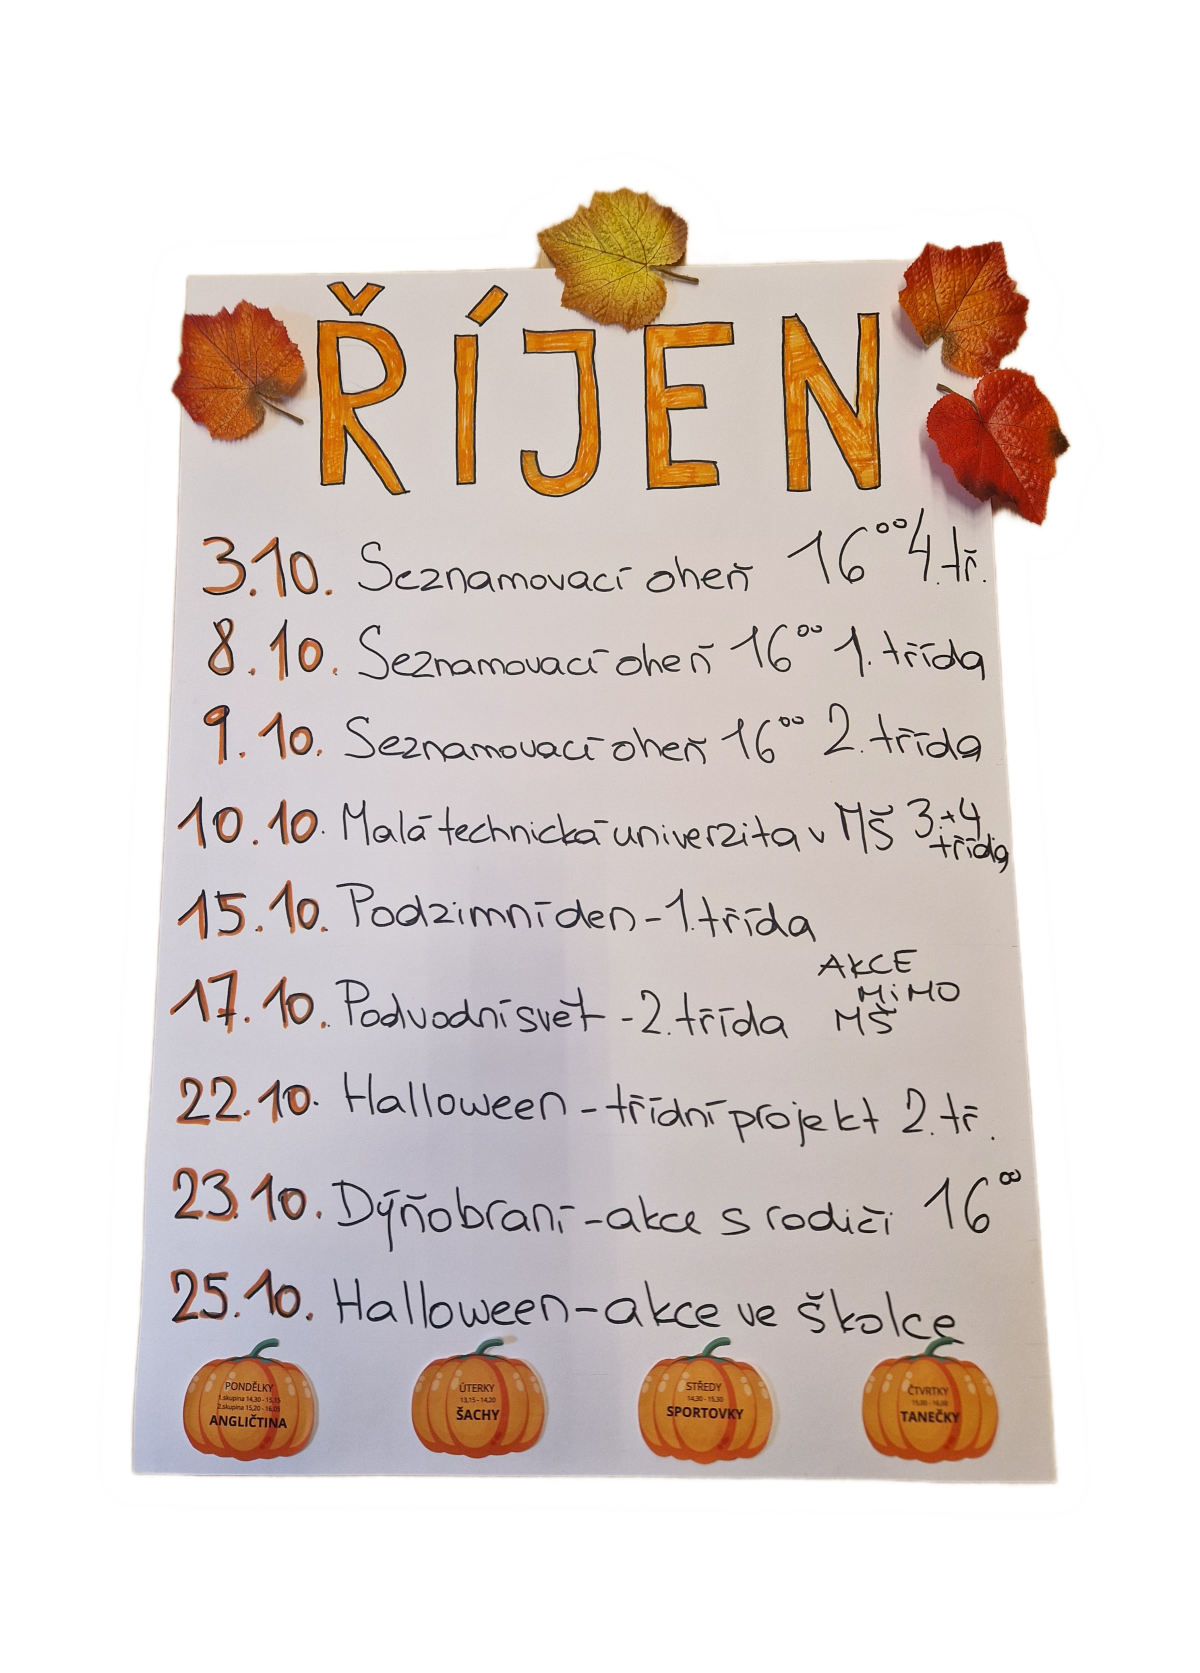 ŘÍJEN
3.10. Seznamovací oheň 16⁰⁰ 4.tř.
8.10. Seznamovací oheň 16⁰⁰ 1. třída
9.10. Seznamovací oheň 16⁰⁰ 2. třída
10.10. Malá technická univerzita v MŠ 3.+4
třída
15.10. Podzimní den - 1. třída
AKCE
17.10. Podvodní svět - 2. třída MIMO
MŠ
22.10. Halloween - třídní projekt 2. tř.
23.10. Dýňobraní - akce s rodiči 16⁰⁰
25.10. Halloween - akce ve školce
PONDĚLKY
1.skupina 14,30 - 15,15
2.skupina 15,20 - 16,05
ANGLIČTINA
ÚTERKY
13,15 - 14,20
ŠACHY
STŘEDY
14,30 - 15,30
SPORTOVKY
ČTVRTKY
15,00 - 16,00
TANEČKY